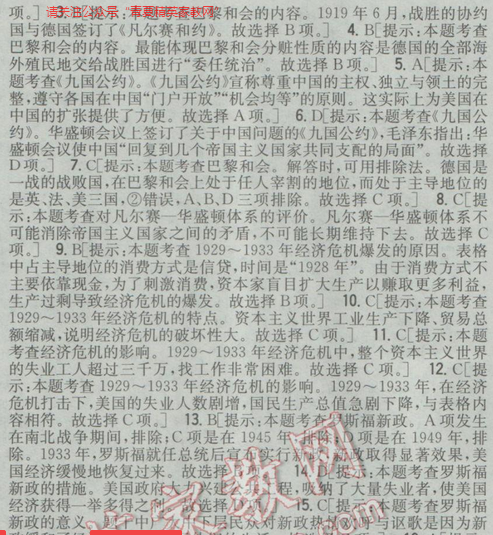 项。] 3. B[提示:本题考查巴黎和会的内容。1919年6月,战胜的协约
国与德国签订了《凡尔赛和约》。故选择B项。] 4. B[提示:本题考查
巴黎和会的内容。最能体现巴黎和会分赃性质的内容是德国的全部海
外殖民地交给战胜国进行“委任统治”。故选择B项。] 5. A[提示:本
题考查《九国公约》。《九国公约》宣称尊重中国的主权、独立与领土的完
整,遵守各国在中国“门户开放”“机会均等”的原则。这实际上为美国在
中国的扩张提供了方便。故选择A项。] 6. D[提示:本题考查《九国公
约》。华盛顿会议上签订了关于中国问题的《九国公约》,毛泽东指出:华
盛顿会议使中国“回复到几个帝国主义国家共同支配的局面”。故选择
D项。] 7. C[提示:本题考查巴黎和会。解答时,可用排除法。德国是
一战的战败国,在巴黎和会上处于任人宰割的地位,而处于主导地位的
是英、法、美三国,②错误,A、B、D三项排除。故选择C项。] 8. C[提
示:本题考查对凡尔赛—华盛顿体系的评价。凡尔赛—华盛顿体系不
可能消除帝国主义国家之间的矛盾,不可能长期维持下去。故选择C
项。] 9. B[提示:本题考查1929～1933年经济危机爆发的原因。表格
中占主导地位的消费方式是信贷,时间是“1928年”。由于消费方式不
主要依靠现金,为了刺激消费,资本家盲目扩大生产以赚取更多利益,
生产过剩导致经济危机的爆发。故选择B项。] 10. C[提示:本题考查
1929～1933年经济危机的特点。资本主义世界工业生产下降、贸易总
额缩减,说明经济危机的破坏性大。故选择C项。] 11. C[提示:本题
考查经济危机的影响。1929～1933年经济危机中,整个资本主义世界
的失业工人超过三千万,找工作非常困难。故选择C项。] 12. C[提
示:本题考查1929～1933年经济危机的影响。1929～1933年,在经济
危机打击下,美国的失业人数剧增,国民生产总值急剧下降,与表格内
容相符。故选择C项。] 13. B[提示:本题考查罗斯福新政。A项发生
在南北战争期间,排除;C项是在1945年 项是在1949年,排
除。1933年,罗斯福就任总统后 实行新 政取得显著效果,美
国经济缓慢地恢复过来。故选择 项。] 14. 提示:本题考查罗斯福
新政的措施。美国政府大力兴建 程,吸纳了大量失业者,使美国
经济获得一举多得之利。故选择 项。] 15. C[提示:本题考查罗斯福
新政的意义。题干中 民众对新政 与讴歌是因为新